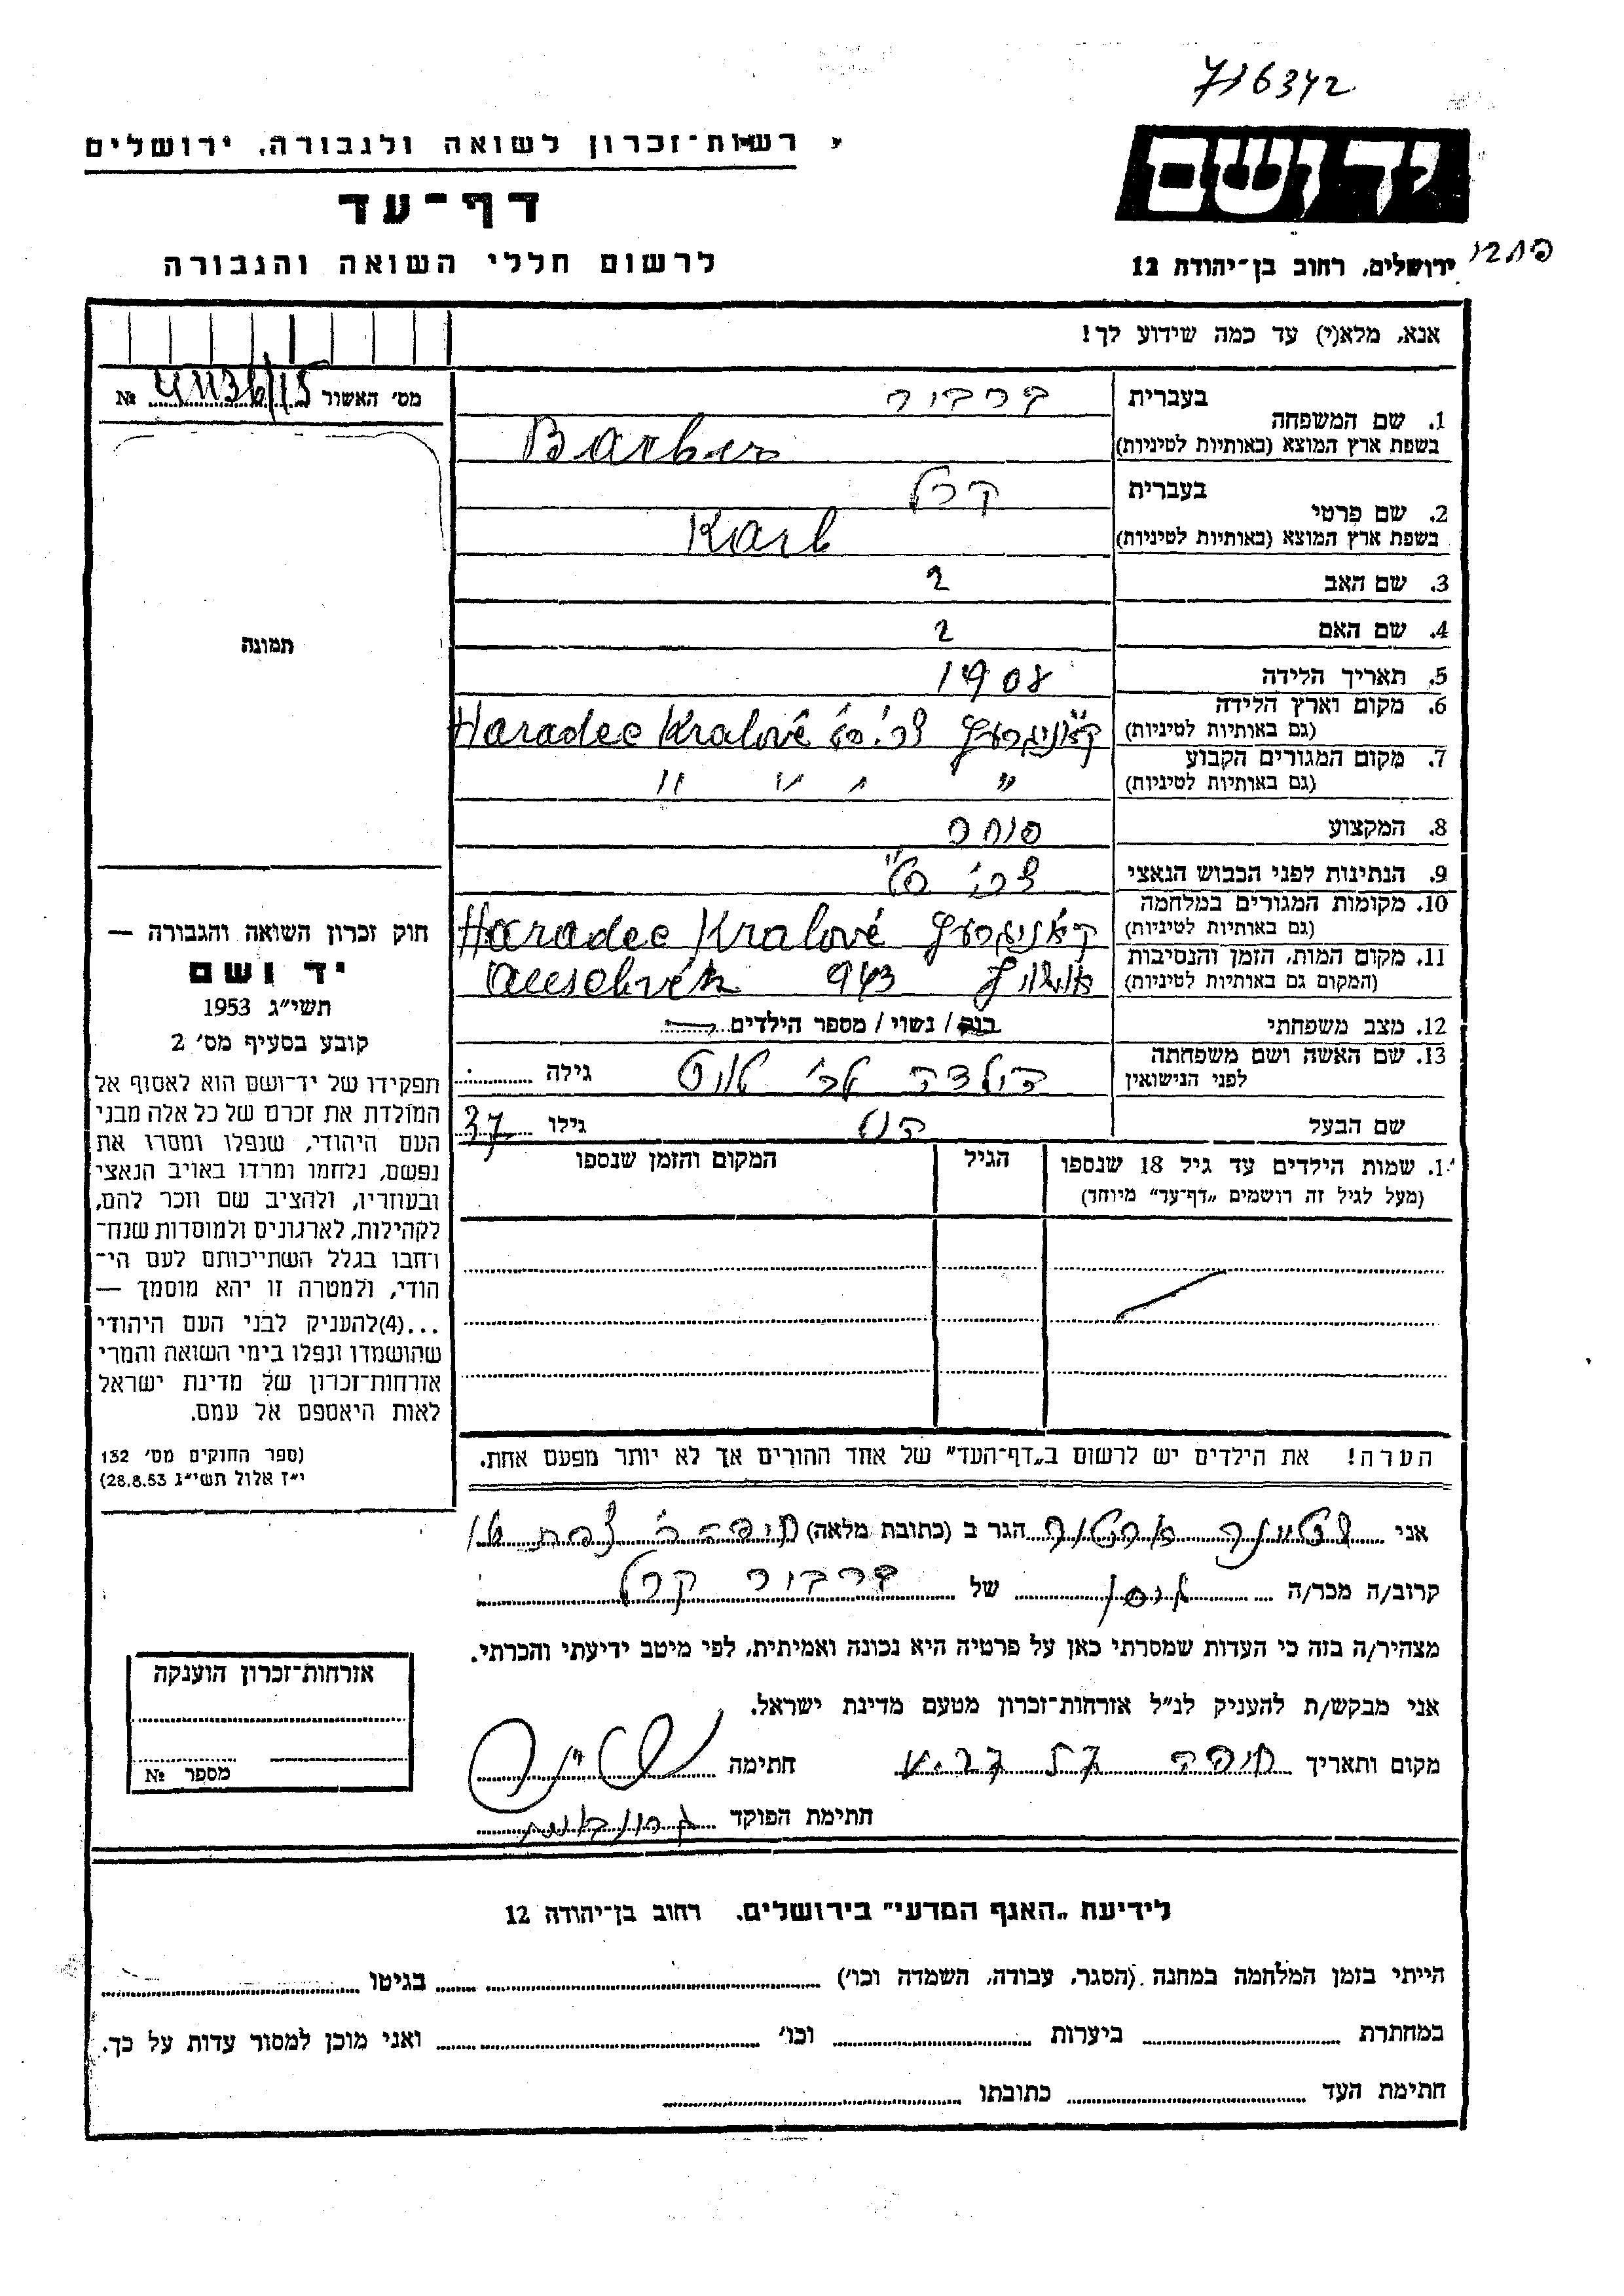 716342
רשות-זכרון לשואה ולגבורה, ירושלים
יד ושם
דף-עד
לרשום חללי השואה והגבורה
ירושלים, רחוב בן-יהודה 12
אנא, מלא(י) עד כמה שידוע לך!
מס׳ האשור №
תמונה
1. שם המשפחה
בעברית ברבור
בשפת ארץ המוצא (באותיות לטיניות) Barber
2. שם פרטי
בעברית קרל
בשפת ארץ המוצא (באותיות לטיניות) Karl
3. שם האב ?
4. שם האם ?
5. תאריך הלידה 1908
6. מקום וארץ הלידה
(גם באותיות לטיניות) קאניגרעץ צ׳כ׳ Haradec Kralové
7. מקום המגורים הקבוע
(גם באותיות לטיניות) " " " "
8. המקצוע סוחר
9. הנתינות לפני הכבוש הנאצי
10. מקומות המגורים במלחמה
(גם באותיות לטיניות) קאניגרעץ Haradec Kralové
11. מקום המות, הזמן והנסיבות
(המקום גם באותיות לטיניות) אושוויץ 943
12. מצב משפחתי רווק / נשוי / מספר הילדים
13. שם האשה ושם משפחתה
לפני הנישואין גילה
שם הבעל גילו 37
1. שמות הילדים עד גיל 18 שנספו הגיל המקום והזמן שנספו
(מעל לגיל זה רושמים „דף-עד" מיוחד)
הערה! את הילדים יש לרשום ב„דף-העד" של אחד ההורים אך לא יותר מפעם אחת.
חוק זכרון השואה והגבורה —
יד ושם
תשי״ג 1953
קובע בסעיף מס׳ 2
תפקידו של יד-ושם הוא לאסוף אל
המולדת את זכרם של כל אלה מבני
העם היהודי, שנפלו ומסרו את
נפשם, נלחמו ומרדו באויב הנאצי
ובעוזריו, ולהציב שם וזכר להם,
לקהילות, לארגונים ולמוסדות שנח-
רחבו בגלל השתייכותם לעם הי-
הודי, ולמטרה זו יהא מוסמך —
...(4)להעניק לבני העם היהודי
שהושמדו ונפלו בימי השואה והמרי
אזרחות-זכרון של מדינת ישראל
לאות היאספם אל עמם.
(ספר החוקים מס׳ 132
י״ז אלול תשי״ג 28.8.53)
אני הגר ב (כתובת מלאה)
קרוב/ה מכר/ה של ברבור קרל
מצהיר/ה בזה כי העדות שמסרתי כאן על פרטיה היא נכונה ואמיתית, לפי מיטב ידיעתי והכרתי.
אני מבקש/ת להעניק לנ״ל אזרחות-זכרון מטעם מדינת ישראל.
מקום ותאריך חיפה חתימה
חתימת הפוקד
אזרחות-זכרון הוענקה
מספר №
לידיעת „האגף המדעי" בירושלים, רחוב בן-יהודה 12
הייתי בזמן המלחמה במחנה (הסגר, עבודה, השמדה וכו׳) בגיטו
במחתרת ביערות וכו׳ ואני מוכן למסור עדות על כך.
חתימת העד כתובתו